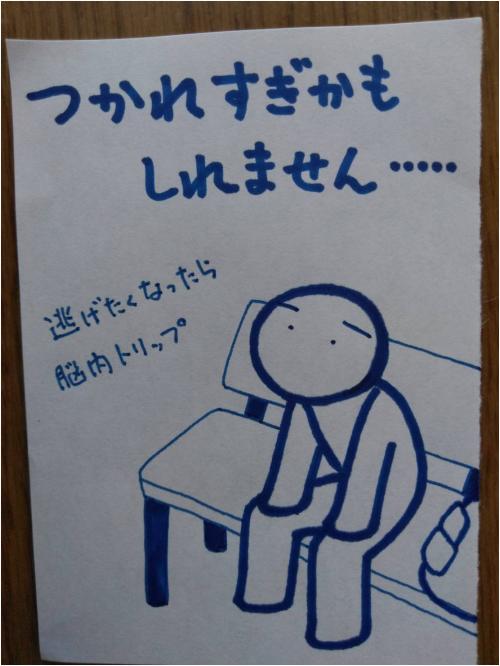 つかれすぎかも
しれません……
逃げたくなったら
脳内トリップ